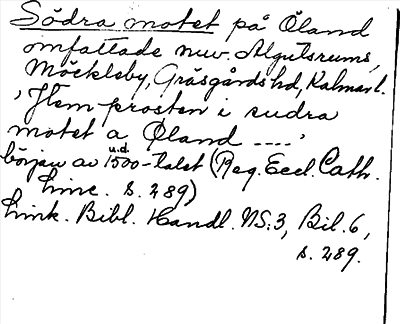 Södra motet på Öland
omfattade nuv. Algutsrums,
Möckleby, Gräsgårds hd, Kalmar l.
'Hem prosten i sudra
motet a Øland ....'
u.d.
början av 1500-talet (Reg. Eccl. Cath.
Linc. s. 289)
Link. Bibl. Handl. NS:3, Bil. 6,
s. 289.